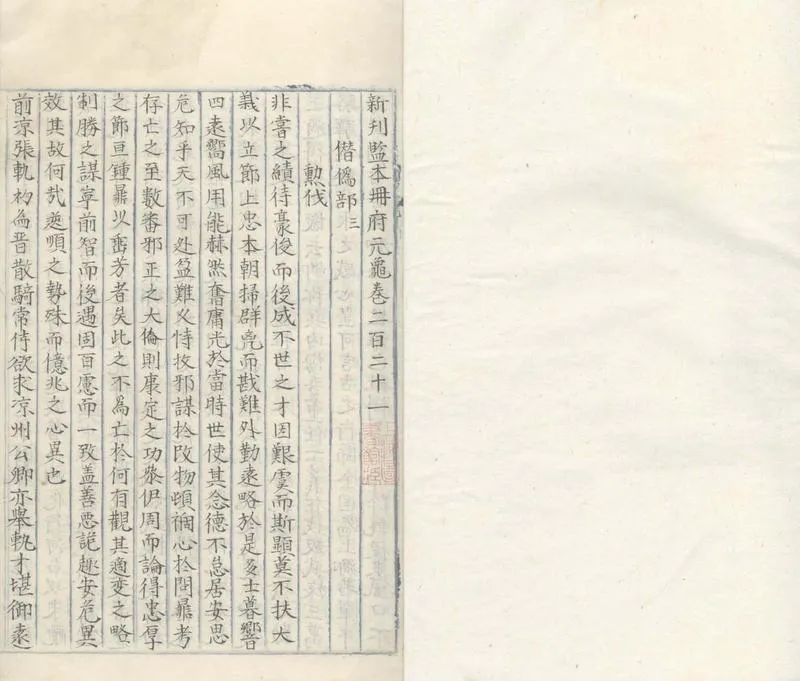 新刊監本冊府元龜卷二百二十一
僭僞部 三
勲伐
非常之績待豪俊而後成不世之才因艱虞而斯顯莫不扶大
義以立節上忠本朝掃群兇而戡難外勤遠略於是多士慕響
四遠嚮風用能赫然奮庸光於當時世使其念德不怠居安思
危知乎天不可赴盈難乂恃妀邪謀於改物頓禍心於問鼎考
存亡之至數審邪正之大倫則康定之功參伊周而論得忠厚
之節亘鍾鼎以畱芳者矣此之不為亡於何有觀其適變之略
制勝之謀寧前智而後遇固百慮而一致盖善惡詭趣安危異
效其故何㦲逆順之勢殊而億兆之心異也
前涼張軌初為晉散騎常侍欲求涼州公卿亦舉軌才堪御遠